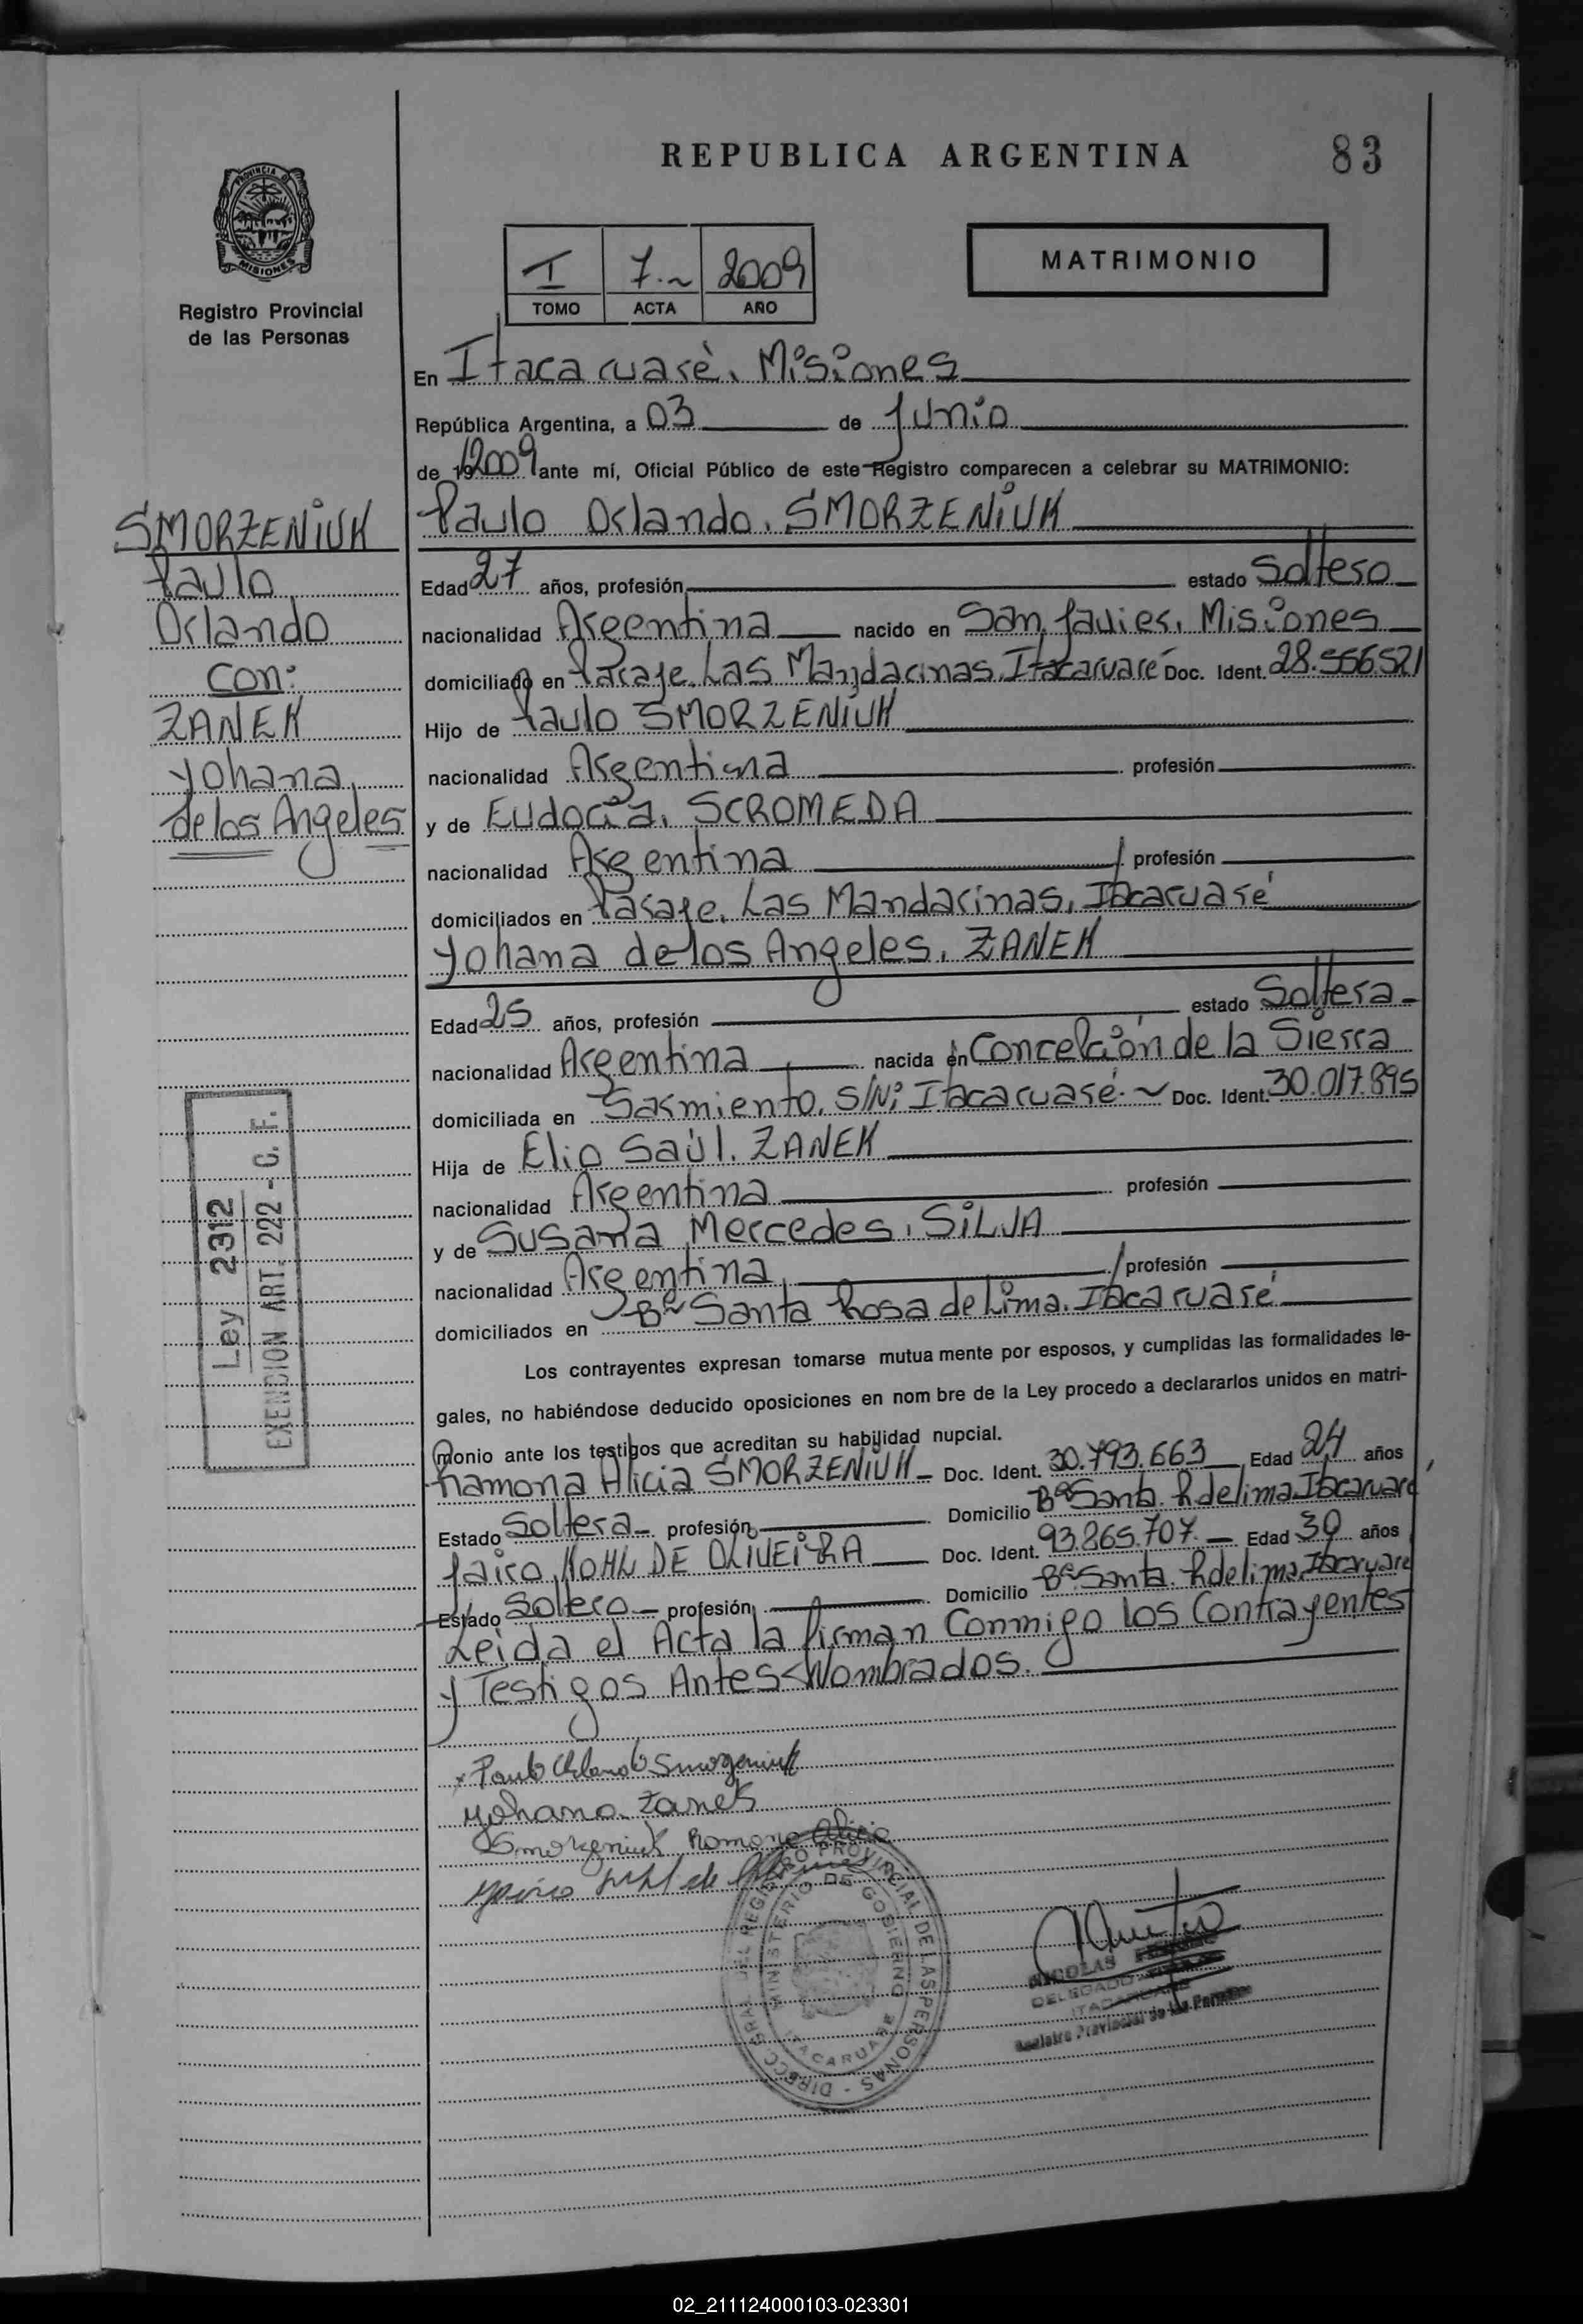 REPUBLICA ARGENTINA
83
PROVINCIA DE MISIONES
Registro Provincial
de las Personas
I 7.~ 2009
TOMO ACTA AÑO
MATRIMONIO
En Itacaruaré, Misiones
República Argentina, a 03 de Junio
de 19 2009 ante mí, Oficial Público de este Registro comparecen a celebrar su MATRIMONIO:
Paulo Orlando, SMORZENIUK
SMORZENIUK
Paulo
Orlando
con:
ZANEK
Yohana
de los Angeles
Edad 27 años, profesión estado Soltero
nacionalidad Argentina nacido en San Javier, Misiones
domiciliado en Paraje Las Mandarinas, Itacaruaré Doc. Ident. 28.556.521
Hijo de Paulo SMORZENIUK
nacionalidad Argentina profesión
y de Eudocia, SCROMEDA
nacionalidad Argentina profesión
domiciliados en Paraje, Las Mandarinas, Itacaruaré
Yohana de los Angeles, ZANEK
Edad 25 años, profesión estado Soltera
nacionalidad Argentina nacida en Concepción de la Sierra
domiciliada en Sarmiento, S/N; Itacaruaré ~ Doc. Ident. 30.017.895
Hija de Elio Saúl, ZANEK
nacionalidad Argentina profesión
y de Susana Mercedes, SILVA
nacionalidad Argentina profesión
domiciliados en Bº Santa Rosa de Lima, Itacaruaré
Ley 2312
EXENCION ART. 222 - C. F.
Los contrayentes expresan tomarse mutua mente por esposos, y cumplidas las formalidades le-
gales, no habiéndose deducido oposiciones en nom bre de la Ley procedo a declararlos unidos en matri-
monio ante los testigos que acreditan su habilidad nupcial.
Ramona Alicia SMORZENIUK Doc. Ident. 30.793.663 Edad 24 años
Estado Soltera profesión Domicilio Bº Santa. R de lima, Itacaruaré
Jairo, KOHL DE OLIVEIRA Doc. Ident. 93.865.707 Edad 30 años
Estado Soltero profesión Domicilio Bº Santa. R de lima, Itacaruaré
Leida el Acta la firman Conmigo los Contrayentes
y Testigos Antes Nombrados.
Paulo Orlando Smorzeniuk
Yohana Zanek
Smorzeniuk Ramona Alicia
DIRECC. GRAL. DEL REGISTRO PROVINCIAL DE LAS PERSONAS
MINISTERIO DE GOBIERNO
ITACARUARE
NICOLAS
DELEGADO
ITACARUARE
Registro Provincial de las Personas
02_211124000103-023301